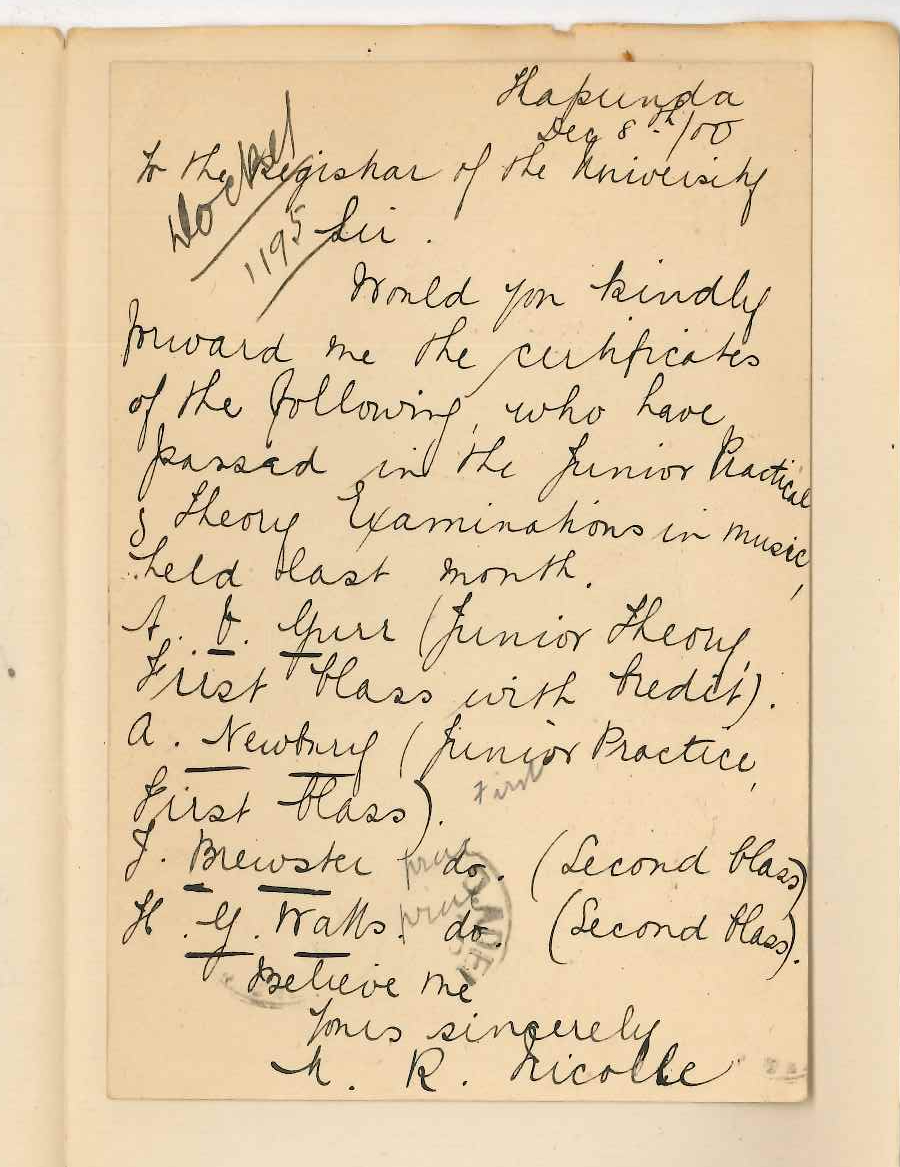 Kapunda
Dec 8th/00
To the Registrar of the University
Docket
1195
Sir.
Would you kindly
forward me the certificates
of the following, who have
passed in the Junior Practical
& Theory Examinations in music,
held last month.
A. V. Gurr (Junior Theory,
First Class with Credit).
A. Newbury (Junior Practice,
First Class). First
J. Brewster prac do. (Second Class)
H. G. Watts. prac do. (Second Class).
Believe me
Yours sincerely
M. R. Nicolle